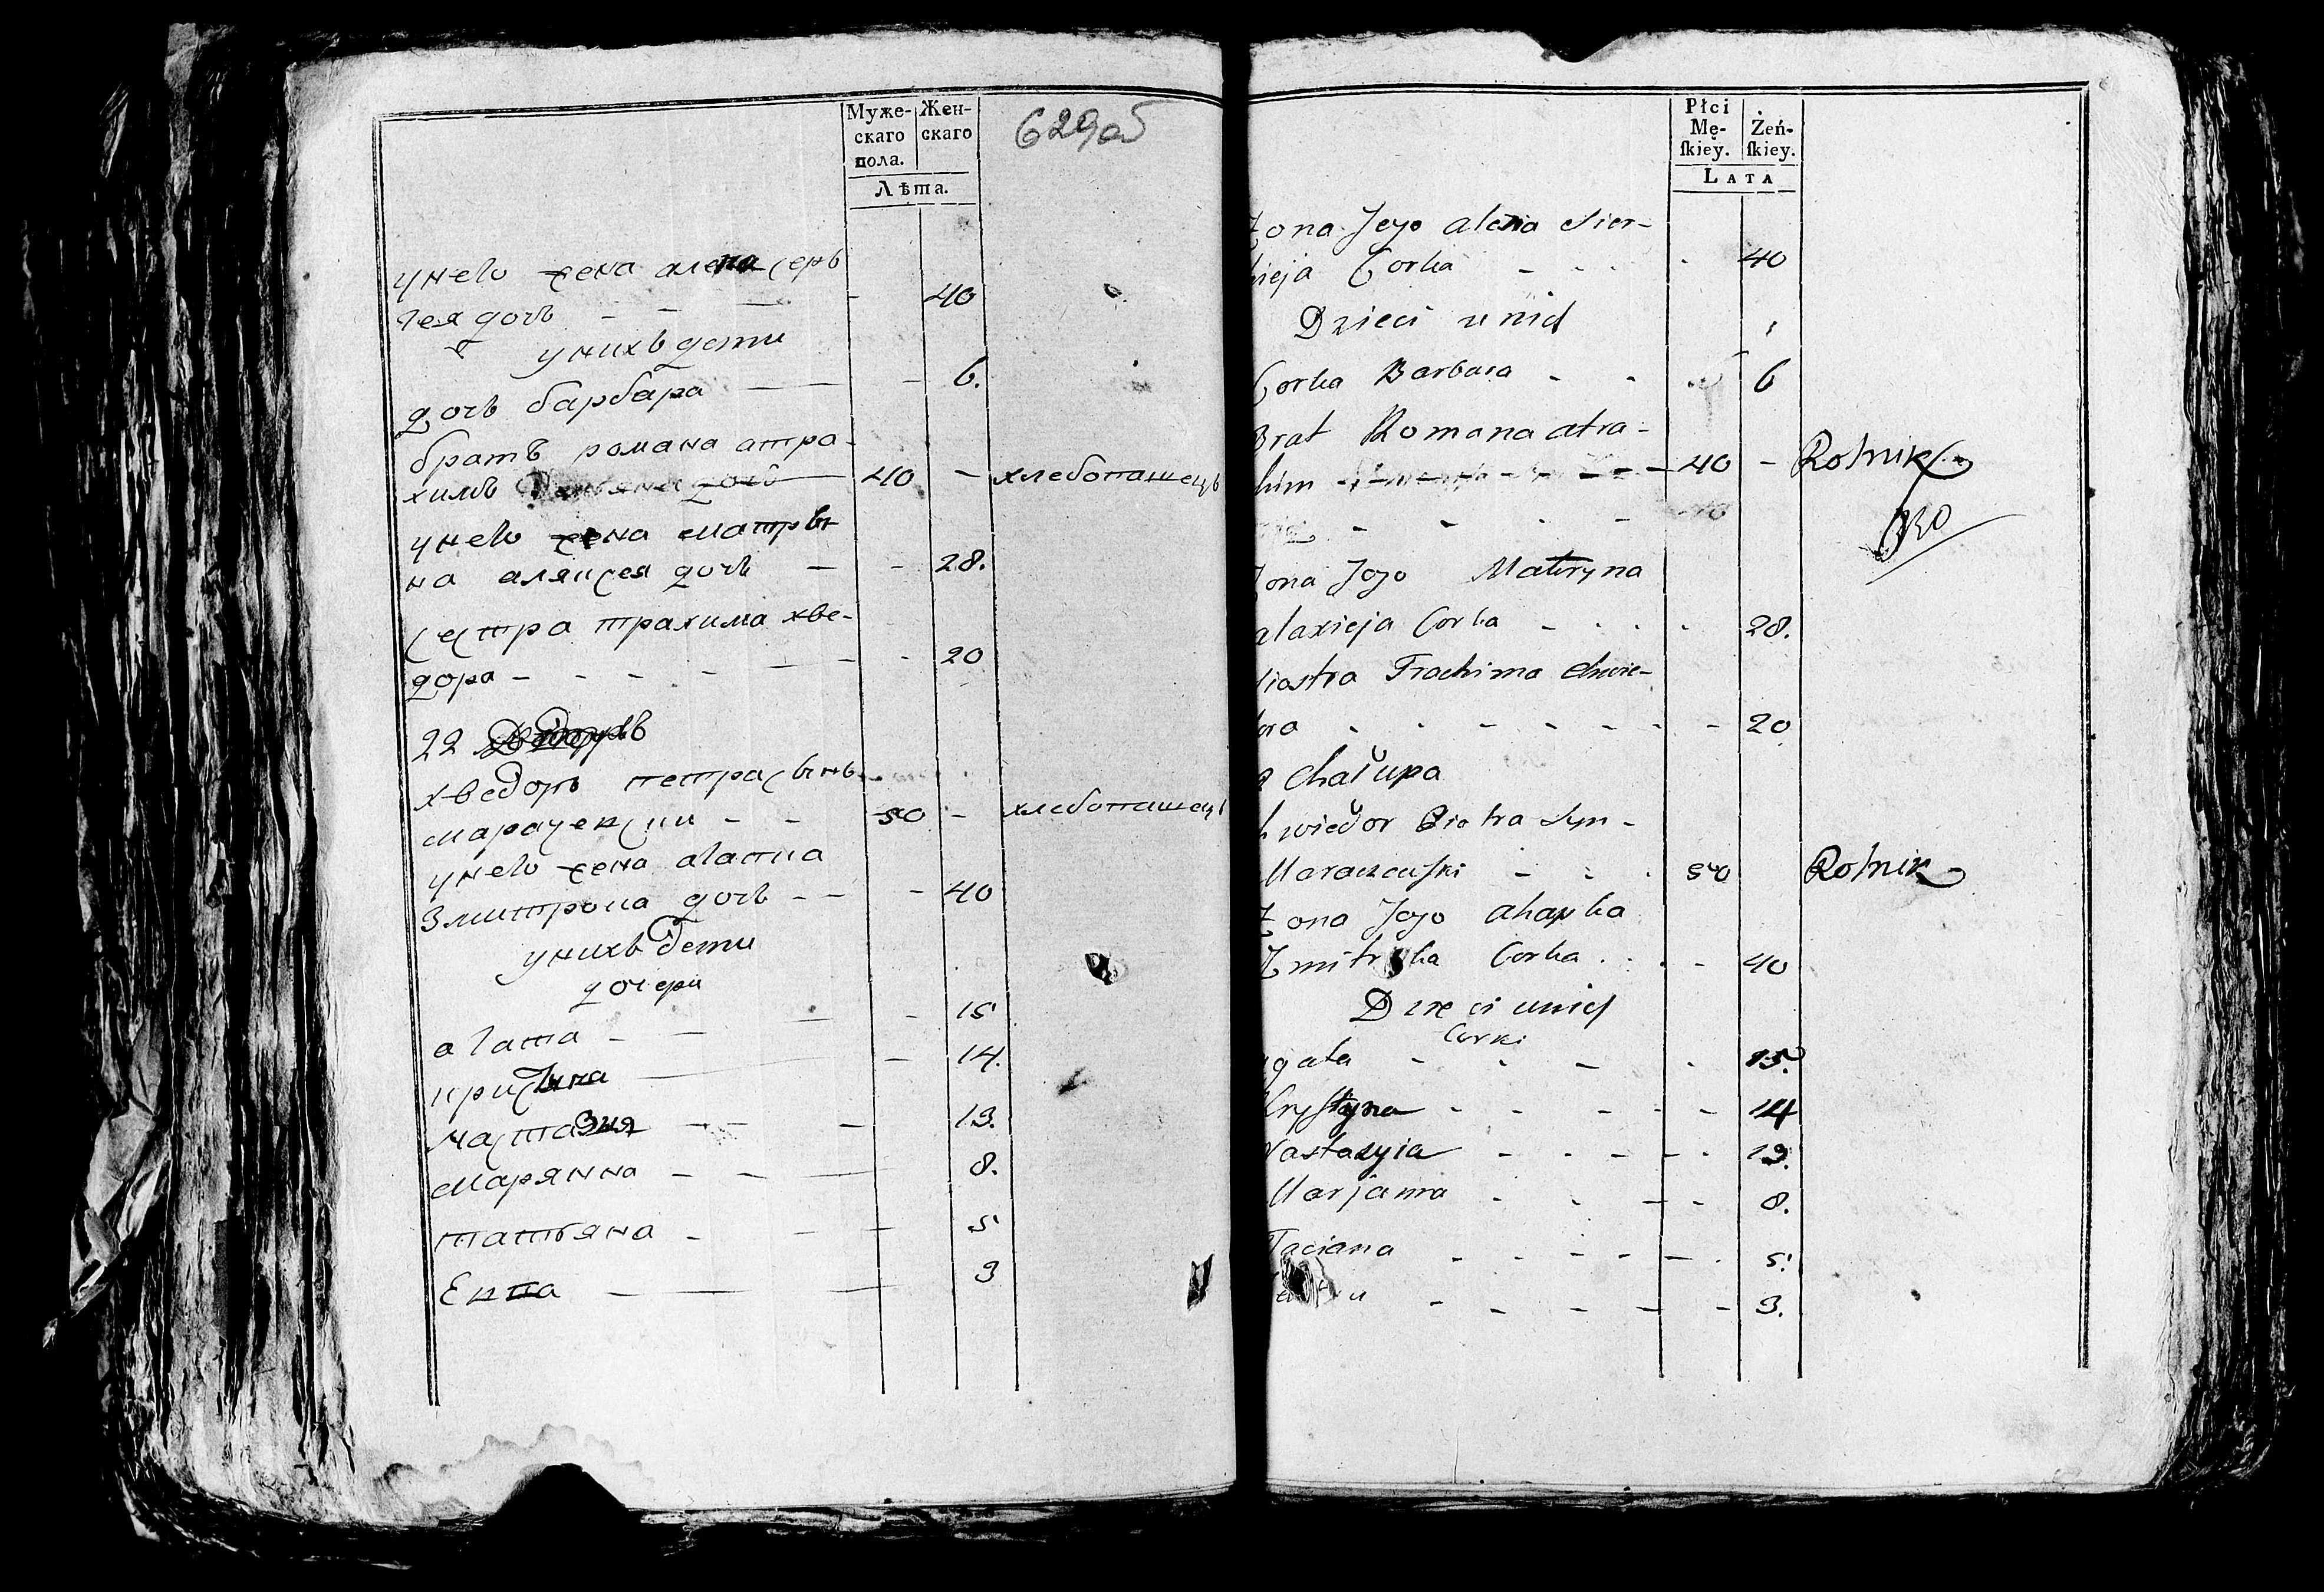 Муже-
скаго
пола.
Жен-
скаго
Лѣта.
629об
унего жена алена серъ
гея дочь - - - - 40
унихъ дети
дочь барбара - - - 6.
братъ романа атра-
химъ 40 - хлебопашецъ
унего жена матры
на аляксея дочь - - 28.
сестра трахима хве-
дора - - - - - - 20
22
хведоръ петра сынъ
марачевски - - 50 - хлебопашецъ
унего жена агапка
Змитрока дочь - - - 40
унихъ дети
дочери
агата - - - - 15
кристына - - 14.
настазия - - - 13.
марянна - - - 8.
татьяна - - - 5
Евка - - - 3
Płci
Mę-
ſkiey.
Żeń-
ſkiey.
LATA
Zona Jego alena Sier-
hieja Corka - - - - 40
Dzieci u nich
Corka Barbara - - - 6
Brat Romana atra-
him - - - 40 - Rolnik
930
Zona Jego Matryna
alaxieja Corka - - - - 28.
Siostra Trachima Chwie-
dora - - - - - - - - 20
a Chałupa
Chwiedor Piotra Syn -
Maraczeuſki - - - 50 Rolnik
Zona Jego ahapka
Zmitroka Corka - - - 40
Dzieci u nich
Corki
agata - - - - 15.
Kryſtyna - - - - - 14
Nastazyia - - - - - 13.
Marjanna - - - - 8.
Taciana - - - - - - 5.
- - - - - 3.